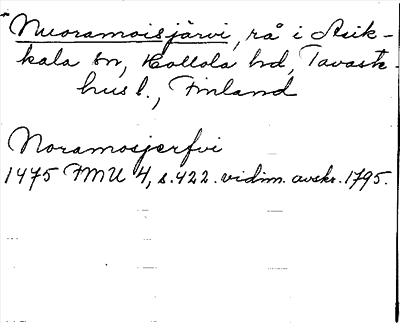 Nuoramoisjärvi, rå i Asik-
kala sn, Hollola hd, Tavaste-
hus l., Finland
Noramosjerfvi
1475 FMU 4, s. 422. vidim. avskr. 1795.